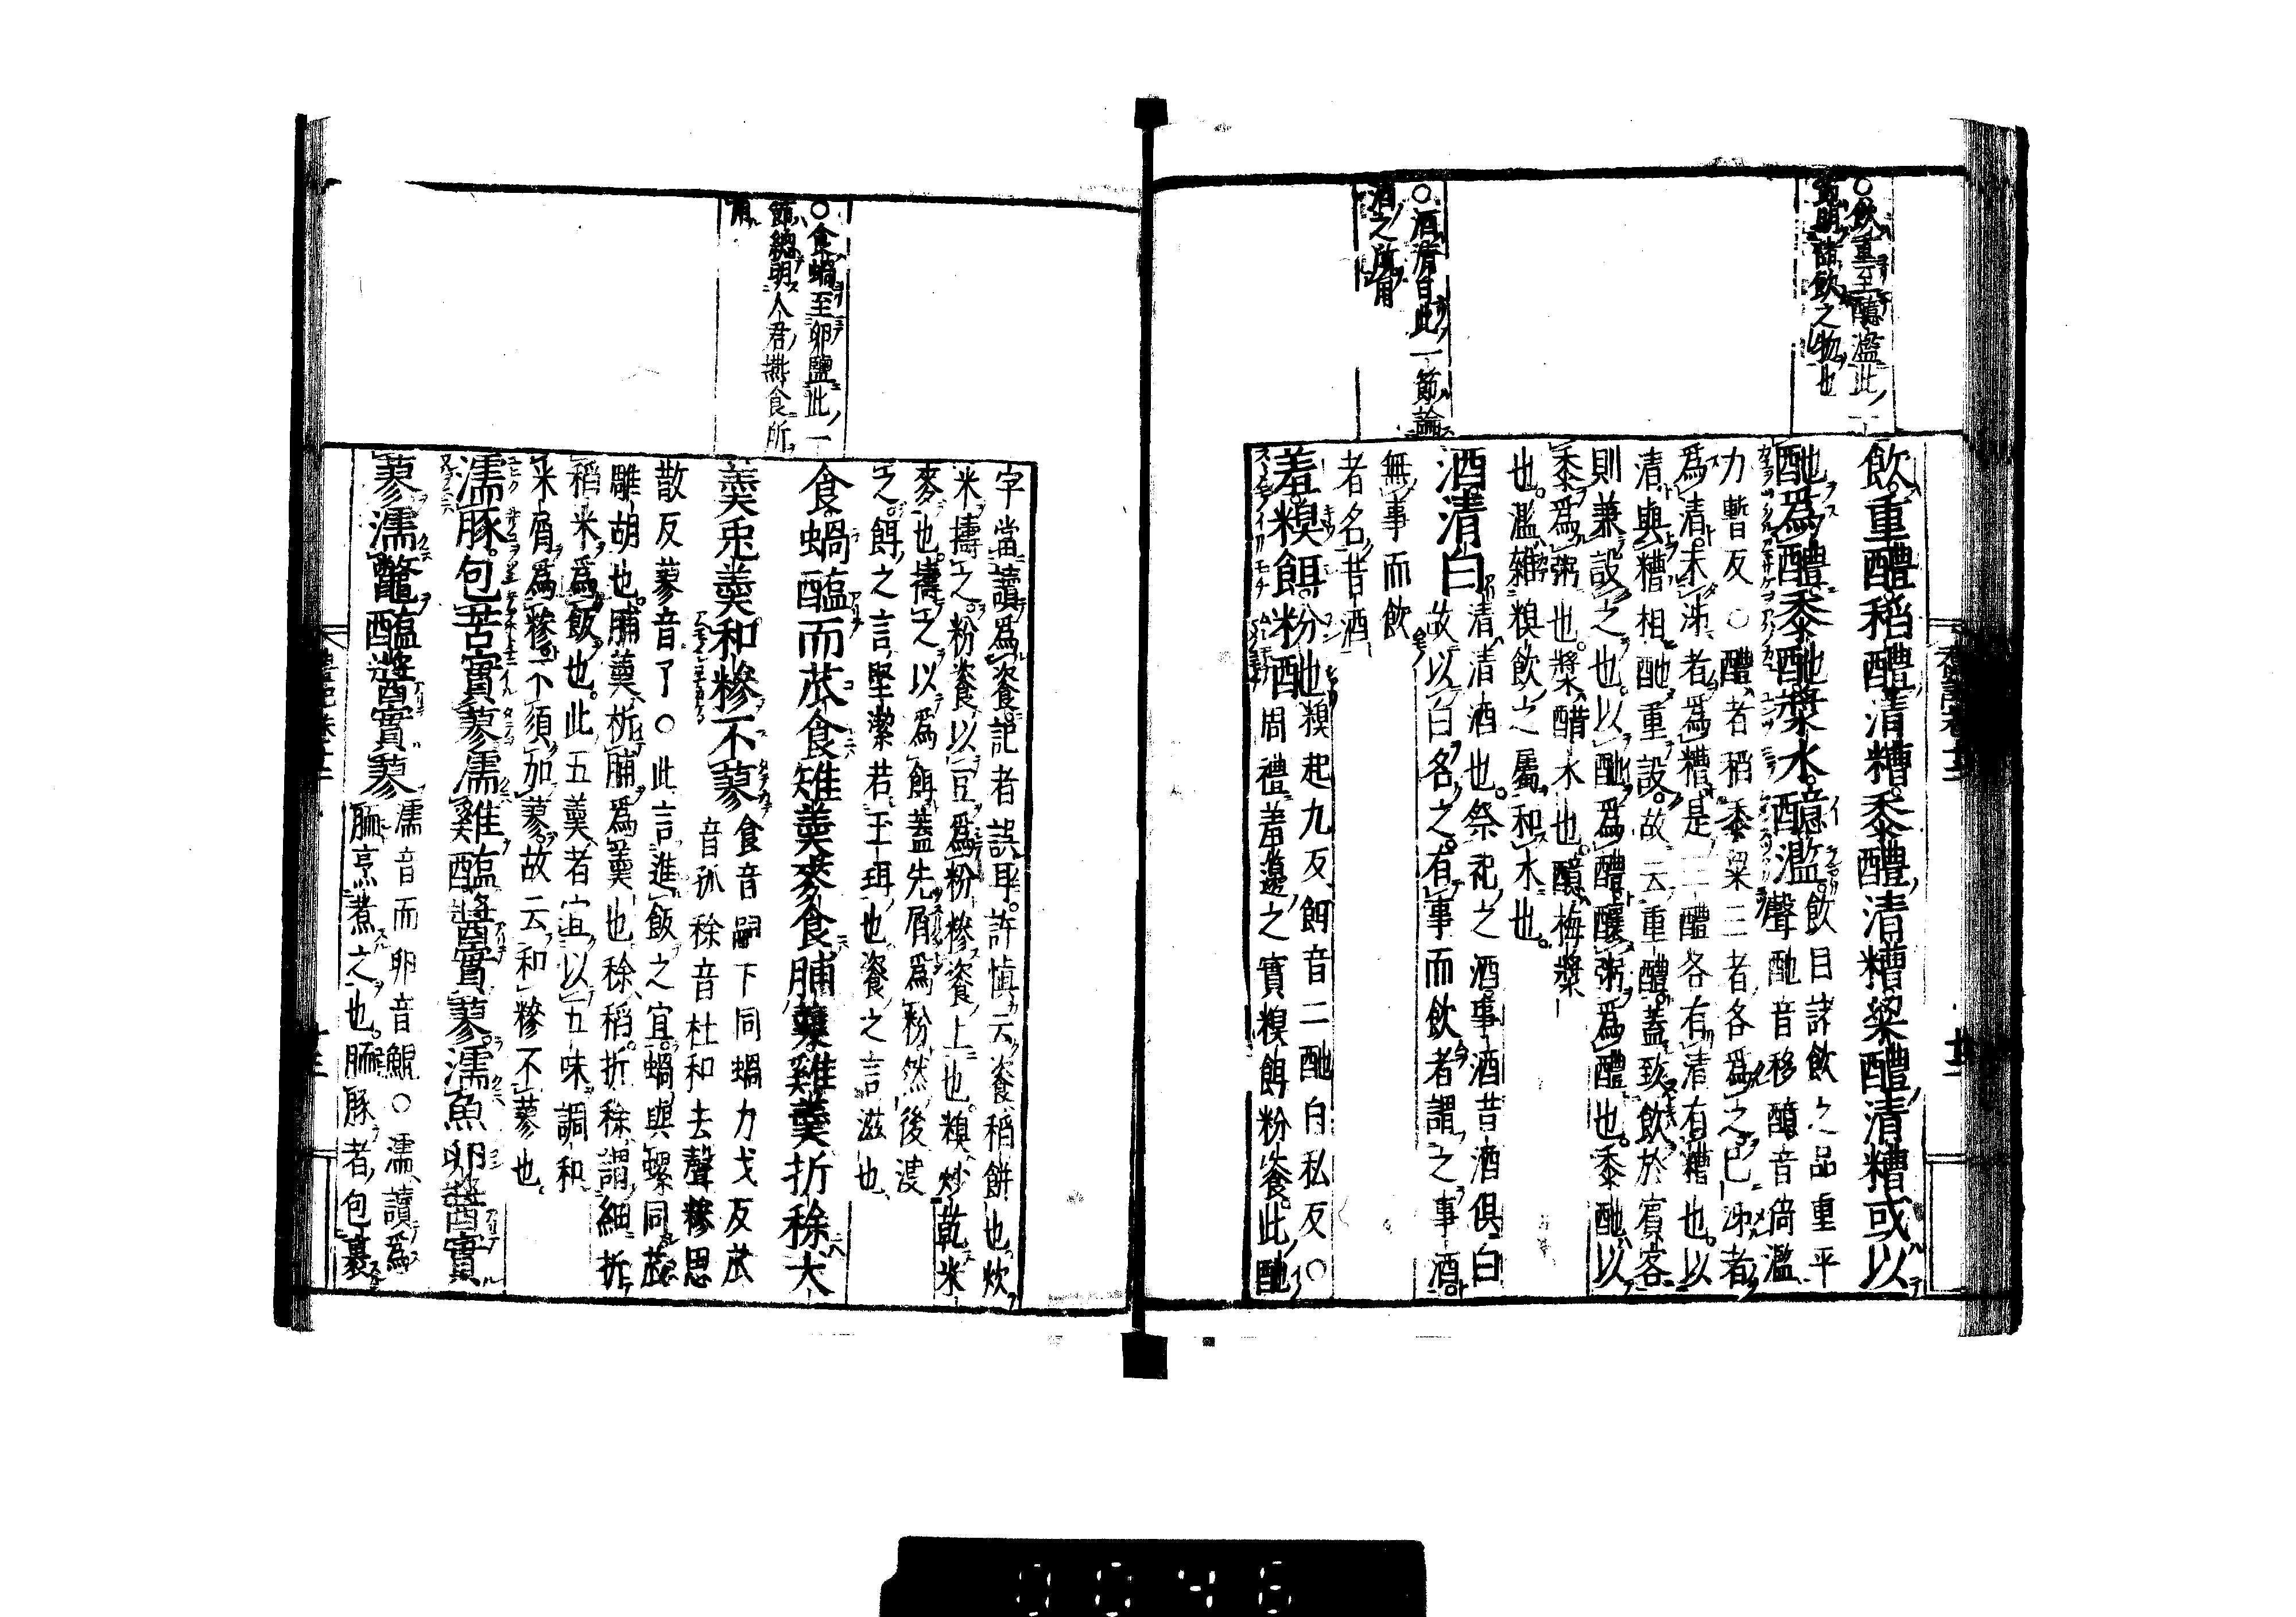 ○飲重至醷濫此一
節明諸飲之物也
飲。重醴。稻醴清糟。黍醴清糟。粱醴清糟。或以
酏爲醴。黍酏。漿。水。醷。濫。飲目諸飲之品重平
聲酏音移醷音倚濫
力暫反○醴者稻黍粱三者各爲之已泲者
爲清未泲者爲糟是三醴各有清有糟也。以
清與糟相配重設。故云重醴。蓋致飲於賓客
則兼設之也。以酏爲醴釀粥爲醴也。黍酏以
黍爲粥也。漿醋水也。醷梅漿
也。濫雜糗飲之屬和水也。
○酒清白此一節論
酒之所用
酒清白 清清酒也。祭祀之酒事酒昔酒俱白
故以白名之。有事而飲者謂之事酒
無事而飲
者名昔酒
羞。糗餌。粉酏 糗起九反餌音二酏自私反○
周禮羞籩之實糗餌粉餈。此酏
字當讀爲餈。記者誤耳。許愼云餈稻餅也炊
米擣之。粉餈以豆爲粉糝餈上也。糗炒乾米
麥也。擣之以爲餌蓋先屑爲粉然後溲
之。餌之言堅潔若玉珥也餈之言滋也
○食蝸至卵鹽此一
節總明人君燕食所
用
食。蝸醢而苽食雉羹。麥食脯羹雞羹。折稌犬
羹兎羹。和糝不蓼 食音嗣下同蝸力戈反苽
音孤稌音杜和去聲糝思
散反蓼音了○此言進飯之宜。蝸與螺同苽
雕胡也。脯羹析脯爲羹也稌稻。折稌謂細折
稻米爲飯也。此五羹者宜以五味調和
米屑爲糝不須加蓼。故云和糝不蓼也
濡豚。包苦實蓼。濡雞醢醬實蓼。濡魚卵醬實
蓼。濡鼈醢醬實蓼 濡音而卵音鯤○濡讀爲
胹烹煮之也。胹豚者包裹